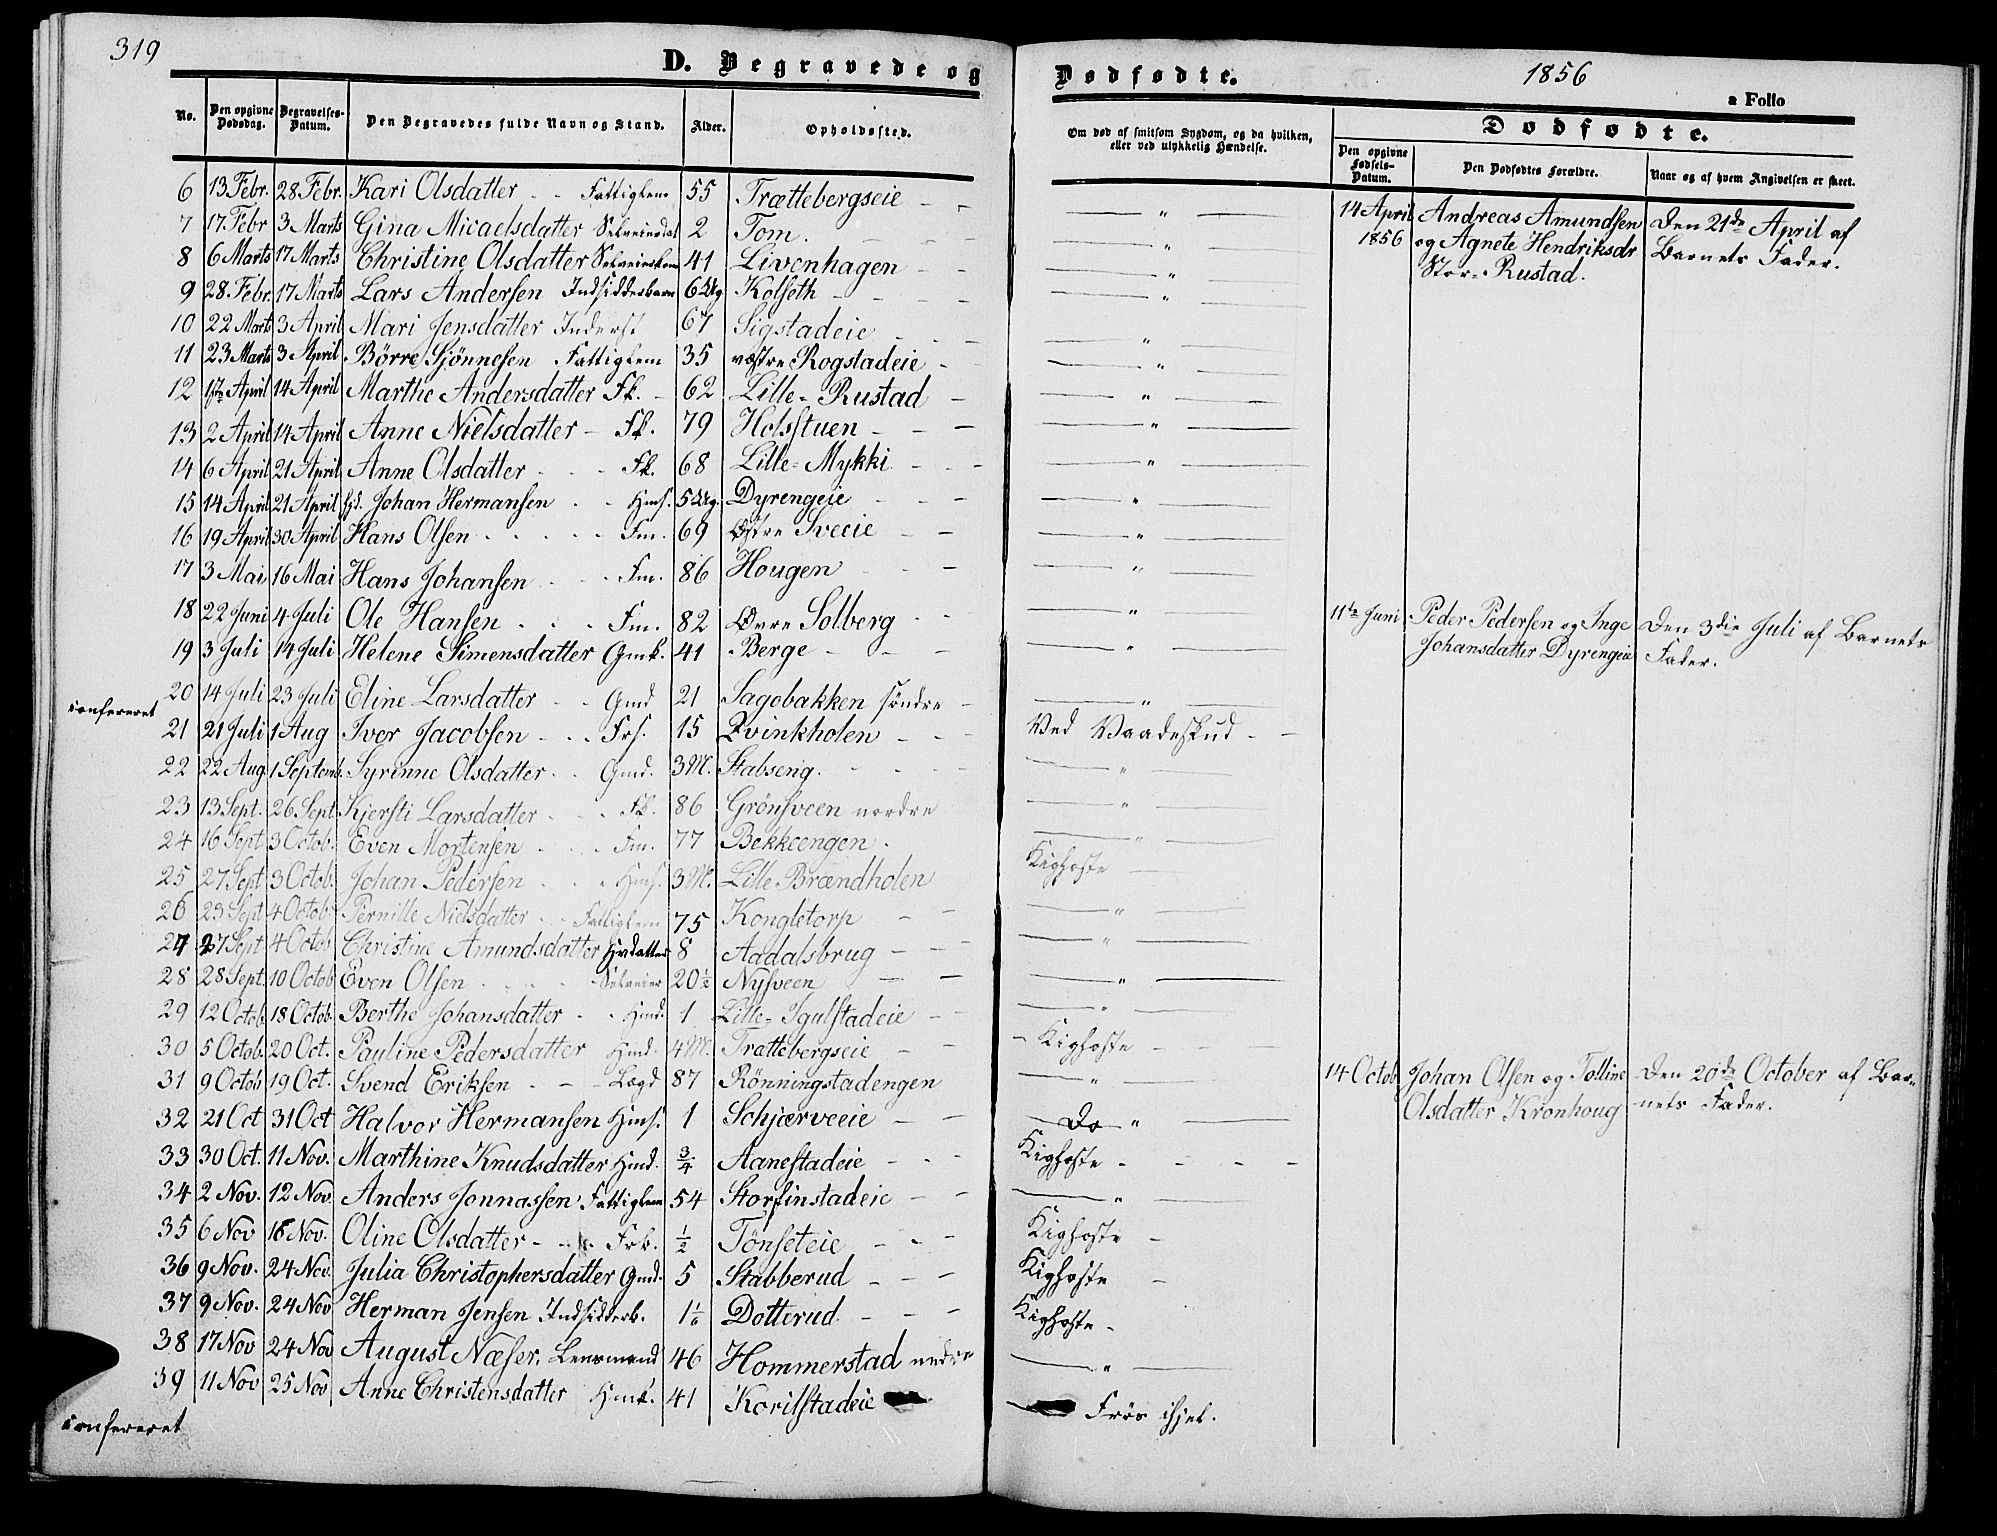 319
D. Begravede og Dødfødte. 1856
a Folio
No. Den opgivne Dødsdag. Begravelses-Datum. Den Begravedes fulde Navn og Stand. Alder. Opholdssted. Om død af smitsom Sygdom, og da hvilken, eller ved ulykkelig Hændelse.
Dødfødte.
Den opgivne Fødsels-Datum. Den Dødfødtes Forældre. Naar og af hvem Angivelsen er skeet.
6 13 Febr. 28 Febr. Kari Olsdatter Fattiglem 55 Trættebergseie "
7 17 Febr 3 Marts Gina Micaelsdatter Selveierdat 2 Tom. "
8 6 Marts 17 Marts Christine Olsdatter Selveierkone 41 Livenhagen "
9 28. Febr. 17 Marts Lars Andersen Indsidderbarn 6 Ug. Kolseth "
10 22 Marts 3 April Mari Jensdatter Inderst 67 Sigstadeie "
11 23 Marts 3 April Børre Sjønnesen Fattiglem 35 vestre Rogstadeie "
12 1ste April 14 April Marthe Andersdatter Fk. 62 Lille-Rustad "
13 2 April 14 April Anne Nielsdatter Fk. 79 Holsstuen "
14 6 April 21 April Anne Olsdatter Fk. 68 Lille-Mykki "
15 14 April 21 April Johan Hermansen Hms. 5 Ug. Dyrengeie "
16 19 April 30 April Hans Olsen Fm. 69 Østre Sveeie "
17 3 Mai 16 Mai Hans Johansen Fm. 86 Hougen "
18 22 Juni 4 Juli Ole Hansen Fm. 82 Øvre Solberg "
19 3 Juli 14 Juli Helene Simensdatter Gmk. 41 Berge "
20 14 Juli 23 Juli Eline Larsdatter Gmd 21 Sagobakken søndre "
confereret
21 21 Juli 1 Aug Iver Jacobsen Frs. 15 Qvinkholen Ved Vaadeskud
22 22 Aug. 1 Septemb. Syrinne Olsdatter Gmd. 3 M. Stabseng. "
23 13 Sept. 26 Sept. Kjersti Larsdatter Fk. 86 Grønsveen nordre "
24 16 Sept 3 Octob. Even Mortensen Fm. 77 Bekkeengen. "
25 27 Sept 3 Octob. Johan Pedersen Hms. 3 M. Lille Brændholen Kighoste
26 23 Sept 4 Octob Pernille Nielsdatter Fattiglem 75 Kongletorp "
27 27 Sept 4 Octob Christine Amundsdatter Hvdatter 8 Aadalsbrug "
28 28 Sept. 10 Octob Even Olsen Selveier 20½ Nysveen "
29 12 Octob 18 Octob. Berthe Johansdatter Hmd. 1 Lille-Igulstadeie "
30 5 Octob. 20 Oct. Pauline Pedersdatter Hmd. 4 M. Trættebergseie Kighoste
31 9 Octob 19 Oct. Svend Eriksen Lægd 87 Rönningstadengen "
32 21 Oct 31 Oct Halvor Hermansen Hms. 1 Schjærveeie Do "
33 30 Oct. 11 Nov. Marthine Knudsdatter Hmd. ¾ Aanestadeie Kighoste
34 2 Nov. 12 Nov. Anders Jonnassen Fattiglem 54 Storfinstadeie "
35 6 Nov 16 Nov. Oline Olsdatter Frb. ½ Tönseteie Kighoste
36 9 Nov. 24 Nov. Julia Christophersdatter Gmd. 5 Stabberud Kighoste
37 9 Nov. 24 Nov Herman Jensen Indsidderb. 1 1/6 Dotterud Kighoste
38 17 Nov 24 Nov August Næser. Lensmand 46 Hommerstad nedre "
39 11 Nov 25 Nov Anne Christensdatter Hmk. 41 Korilstadeie Frös ihjel.
confereret
14 April 1856 Andreas Amundsen og Agnete Hendriksdr Stor-Rustad. Den 21de April af Barnets Fader.
11te Juni Peder Pedersen og Inge Johansdatter Dyrengeie Den 3die Juli af Barnets Fader.
14 Octob Johan Olsen og Tolline Olsdatter Kronhoug Den 20de October af Barnets Fader.